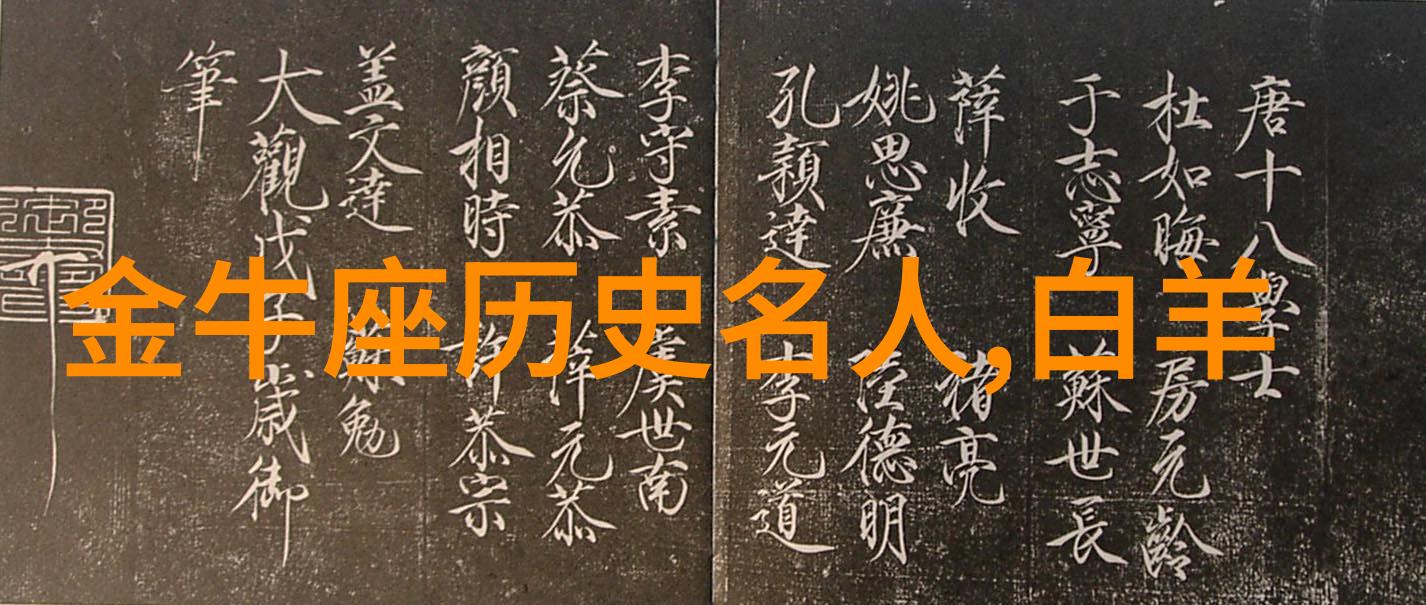 唐十八學士
杜如晦 房元齡
于志寧 蘇世長
薛收 褚亮
姚思廉 陸德明
孔穎達 李元道
李守素 虞世南
蔡允恭 薛元恭
顏相時 許恭宗
盖文達 蘇勉
大觀戊子歲御
筆
金牛座历史名人,白羊